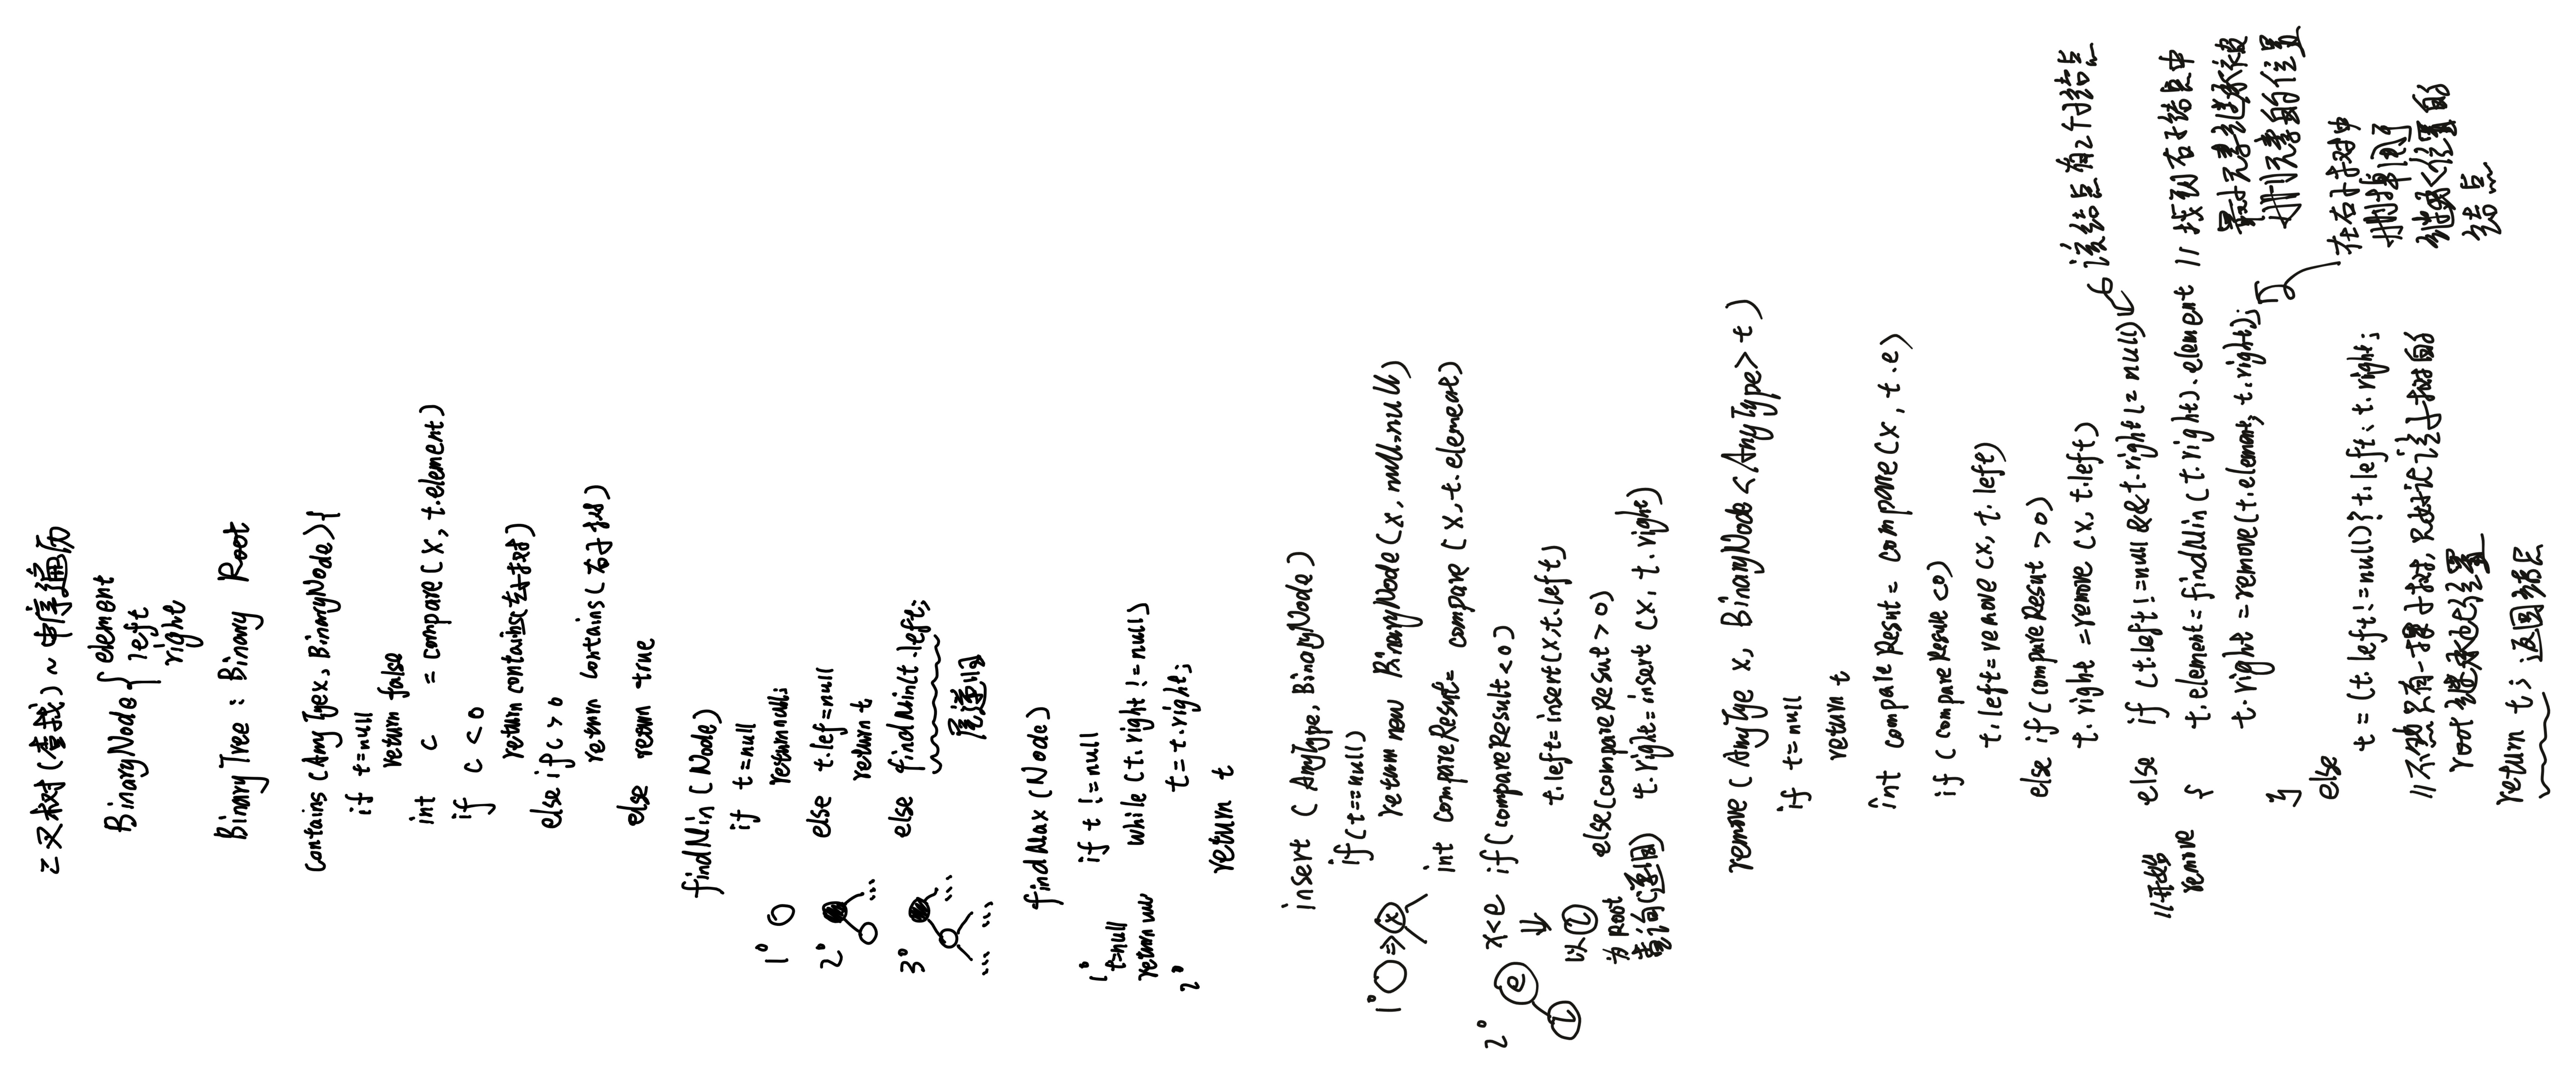 二叉树(查找)~中序遍历
BinaryNode { element
left
right
BinaryTree : Binary Root
contains (AnyTyex, BinaryNode) {
if t=null
return false
int c = compare(x, t.element)
if c < 0
return contains(左子树)
else if c > 0
return contains(右子树)
else reown true
findMin (Node)
if t=null
1° return null;
2° else t.lef=null
return t
...
3° else findMin(t.left;
...
尾递归
... ...
findMax (Node)
1° if t != null
t=null
return null while (t.right != null)
2° t = t.right;
return t
insert ( AnyType, BinaryNode )
if (t==null)
1° => x return new BinaryNode(x, null,null)
int compareResut= compare (x, t.element)
2° e x<e if (compareResult<0)
l ⇓ t.left=insert(x,t.left)
以 l
为 Root else(compareResut > 0)
查询(递归) t.right=insert (x, t.right)
remove ( AnyTye x, BinaryNode<AnyType> t )
if t=null
return t
int compareResut= compare(x, t.e)
if ( compareResult <0)
t.left=remove (x, t.left)
else if (compareResut >0)
t.right =remove (x, t.left)
该结点有2个子结点
//开始 else if (t.left!=null && t.right != null)
remove { t.element=findMin(t.right).element // 找到右子结点中
最小元素继承被
t.right =remove(t.element, t.right);
删元素的位置
}
else
在右子树中
删掉用于
继承位置的
结点
t = (t.left!=null)? t.left : t.right;
//不然只有一棵子树,只好让该子树的
root继承此位置
return t; 返回结点